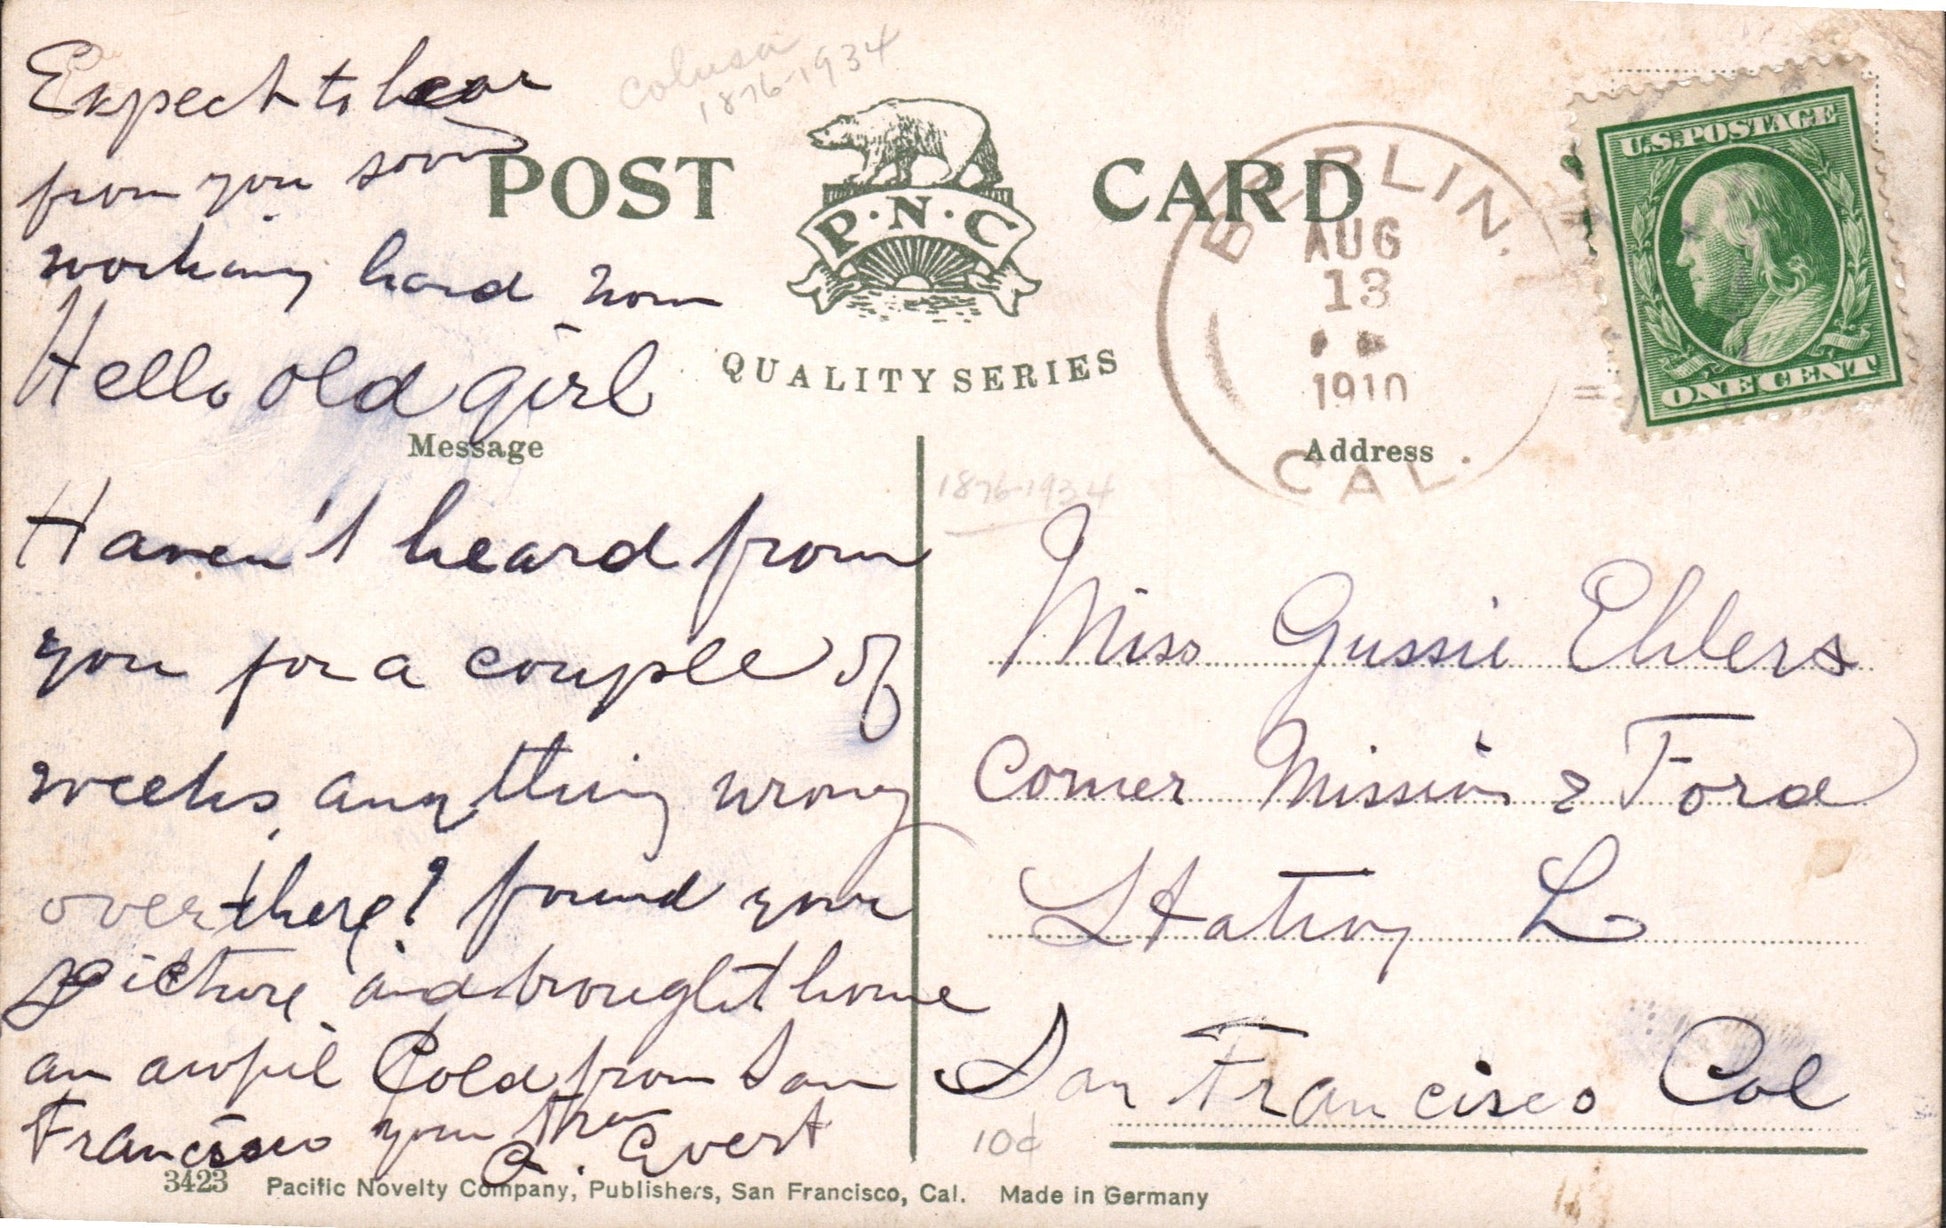 Expect to hear
from you soon
working hard now
Hello old girl
Haven't heard from
you for a couple of
weeks, anything wrong
over there? found your
picture and brought home
an awful Cold from San
Francisco your
Evert
Colusa
1876-1934
POST CARD
P·N·C
QUALITY SERIES
Message
Address
BERLIN.
AUG
13
1910
CAL.
U.S. POSTAGE
ONE CENT
1876-1934
Miss Gussie Ehlers
Corner Mission & Ford
Station L
San Francisco Cal
10¢
3423 Pacific Novelty Company, Publishers, San Francisco, Cal. Made in Germany